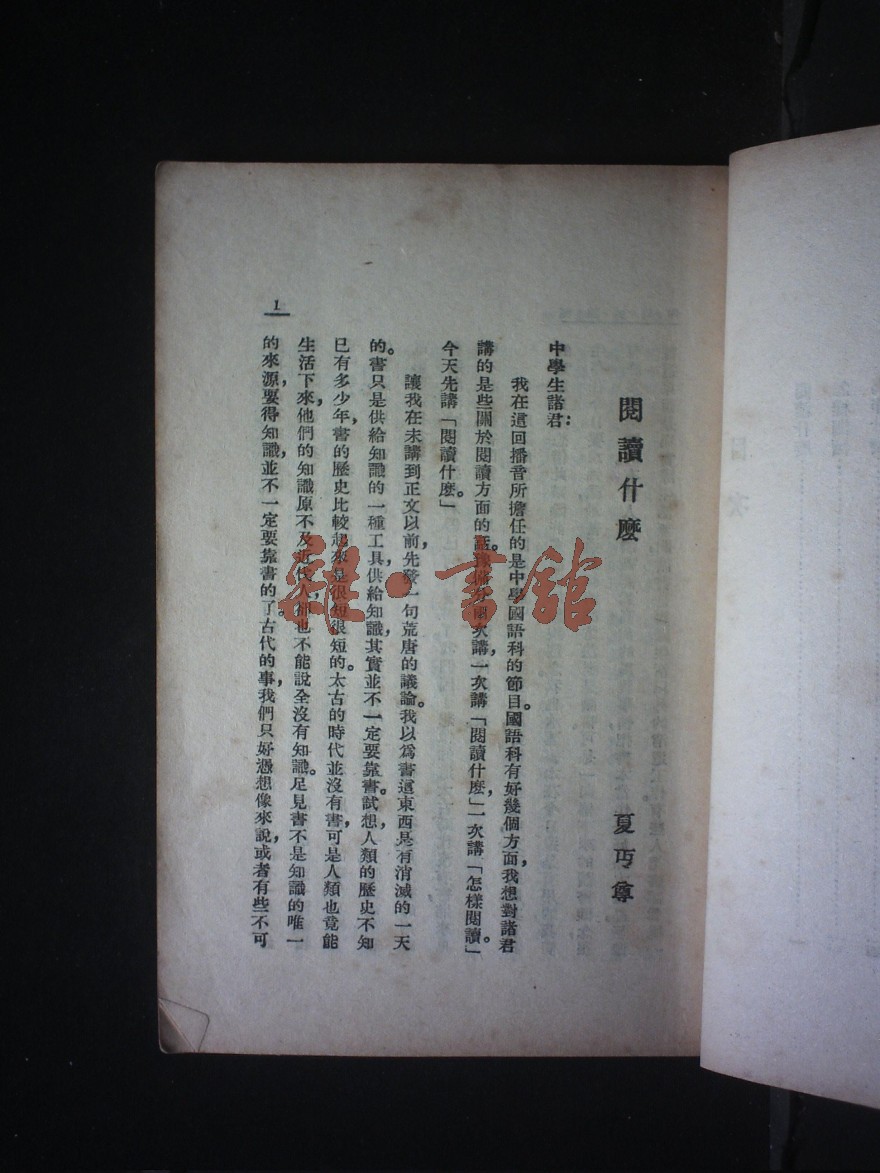 閱讀什麼
夏丏尊
中學生諸君：
我在這回播音所擔任的是中學國語科的節目。國語科有好幾個方面，我想對諸君
講的是些關於閱讀方面的話。預備分兩次講，一次講「閱讀什麼」，一次講「怎樣閱讀」。
今天先講「閱讀什麼。」
讓我在未講到正文以前，先發一句荒唐的議論。我以爲書這東西是有消滅的一天
的。書只是供給知識的一種工具，供給知識，其實並不一定要靠書。試想，人類的歷史不知
已有多少年，書的歷史比較起來是很短很短的。太古的時代並沒有書，可是人類也竟能
生活下來，他們的知識原不及近代人，却也不能說全沒有知識。足見書不是知識的唯一
的來源，要得知識，並不一定要靠書的了。古代的事，我們只好憑想像來說，或者有些不可
1
雜·書館